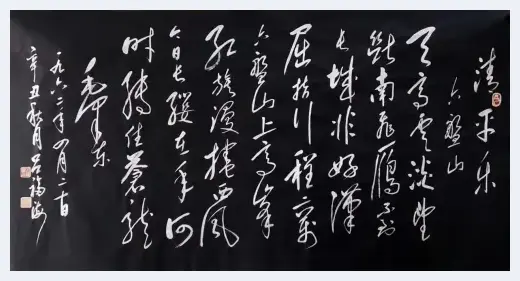 清平乐
六盘山
天高云淡望
断南飞雁不到
长城非好汉
屈指行程二万
六盘山上高峰
红旗漫捲西风
今日长缨在手何
时缚住苍龙
毛泽东
一九六二年四月二十日
辛丑秋月吕福海